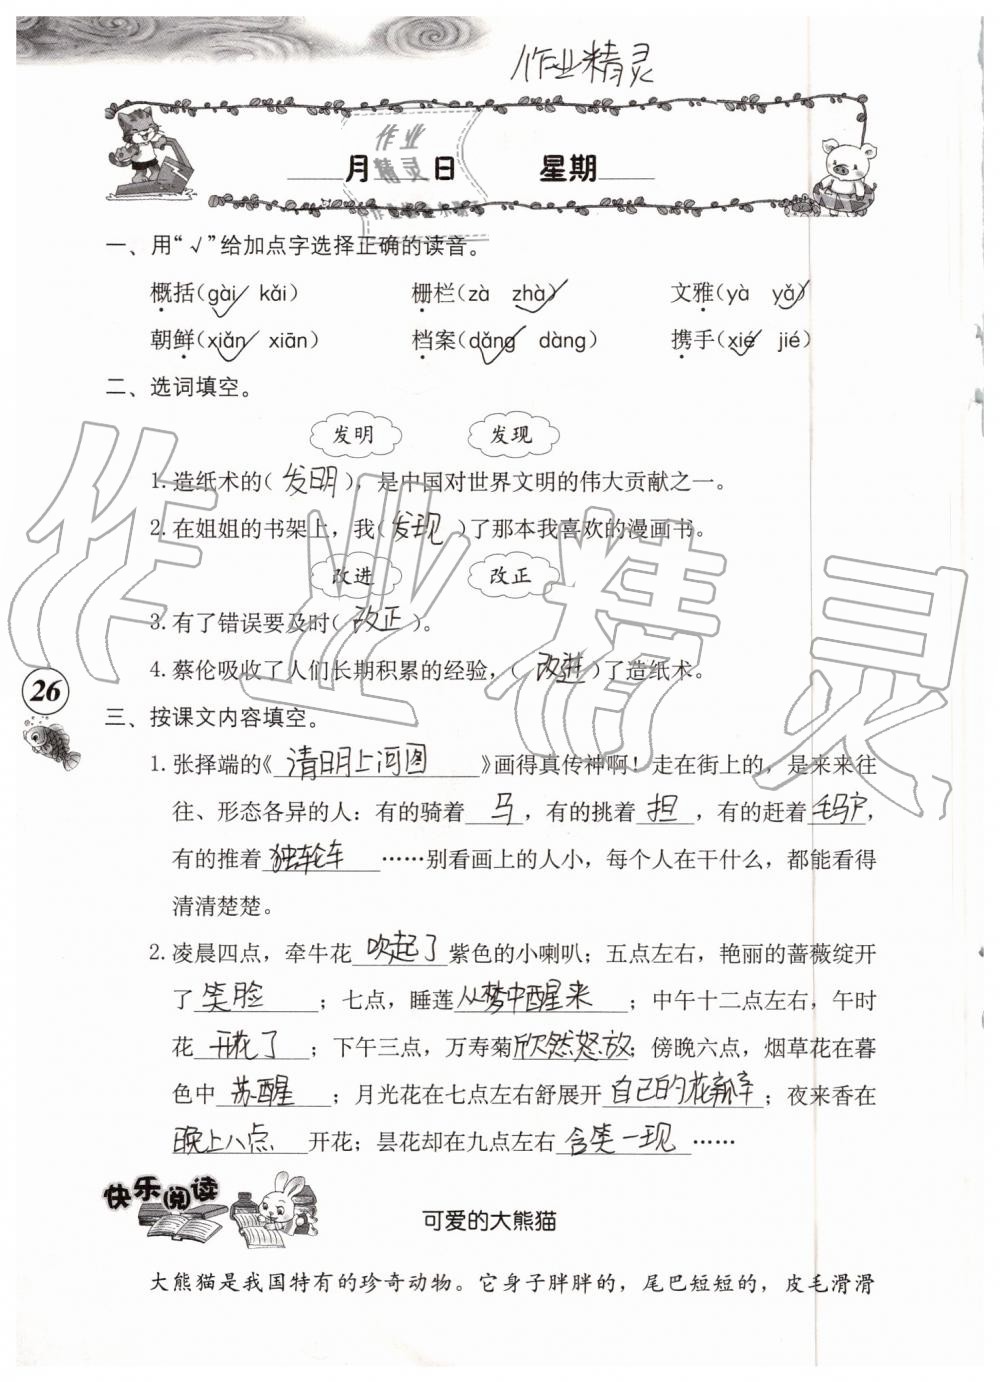 作业精灵
作业
精灵
月 日 星期
一、用“√”给加点字选择正确的读音。
概括(gài√ kǎi) 栅栏(zà zhà√) 文雅(yà yǎ√)
朝鲜(xiǎn√ xiān) 档案(dǎng√ dàng) 携手(xié√ jié)
二、选词填空。
发明 发现
1. 造纸术的(发明),是中国对世界文明的伟大贡献之一。
2. 在姐姐的书架上,我(发现)了那本我喜欢的漫画书。
改进 改正
3. 有了错误要及时(改正)。
4. 蔡伦吸收了人们长期积累的经验,(改进)了造纸术。
26
三、按课文内容填空。
1. 张择端的《清明上河图》画得真传神啊!走在街上的,是来来往
往、形态各异的人:有的骑着马,有的挑着担,有的赶着毛驴,
有的推着独轮车……别看画上的人小,每个人在干什么,都能看得
清清楚楚。
2. 凌晨四点,牵牛花吹起了紫色的小喇叭;五点左右,艳丽的蔷薇绽开
了笑脸;七点,睡莲从梦中醒来;中午十二点左右,午时
花开花了;下午三点,万寿菊欣然怒放;傍晚六点,烟草花在暮
色中苏醒;月光花在七点左右舒展开自己的花瓣;夜来香在
晚上八点开花;昙花却在九点左右含笑一现……
快乐阅读
可爱的大熊猫
大熊猫是我国特有的珍奇动物。它身子胖胖的,尾巴短短的,皮毛滑滑
作业精灵